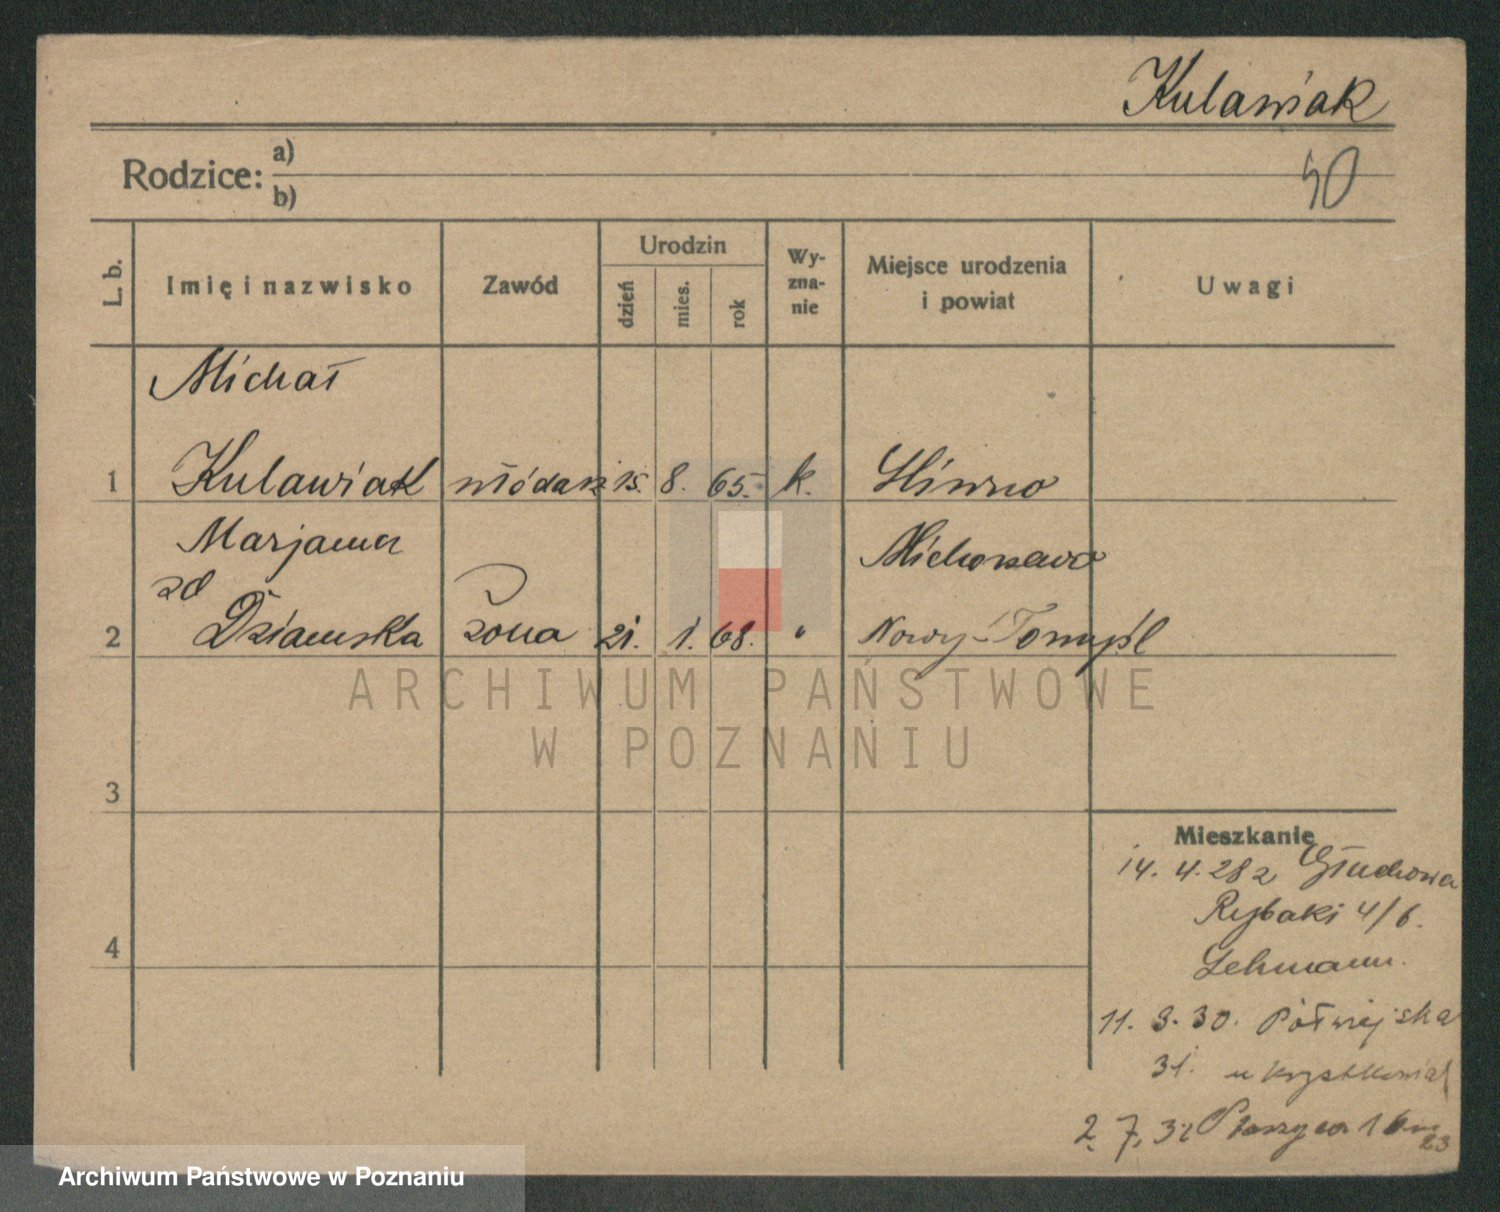 Kulawiak
Rodzice: a)
b)
40
L. b.
Imię i nazwisko
Zawód
Urodzin
dzień
mies.
rok
Wy-
zna-
nie
Miejsce urodzenia
i powiat
Uwagi
Michał
1 Kulawiak włódarz 15. 8. 65. k. Sliwno
Marjanna Michorzewo
zd
2 Dziamska żona 21. 1. 68. " Nowy-Tomyśl
ARCHIWUM PAŃSTWOWE
W POZNANIU
3
Mieszkanie
14. 4. 28 z Głuchowa
Rybaki 4/6.
4
Lehmann.
11. 3. 30. Półwiejska
31. u
2. 7. 32
Archiwum Państwowe w Poznaniu